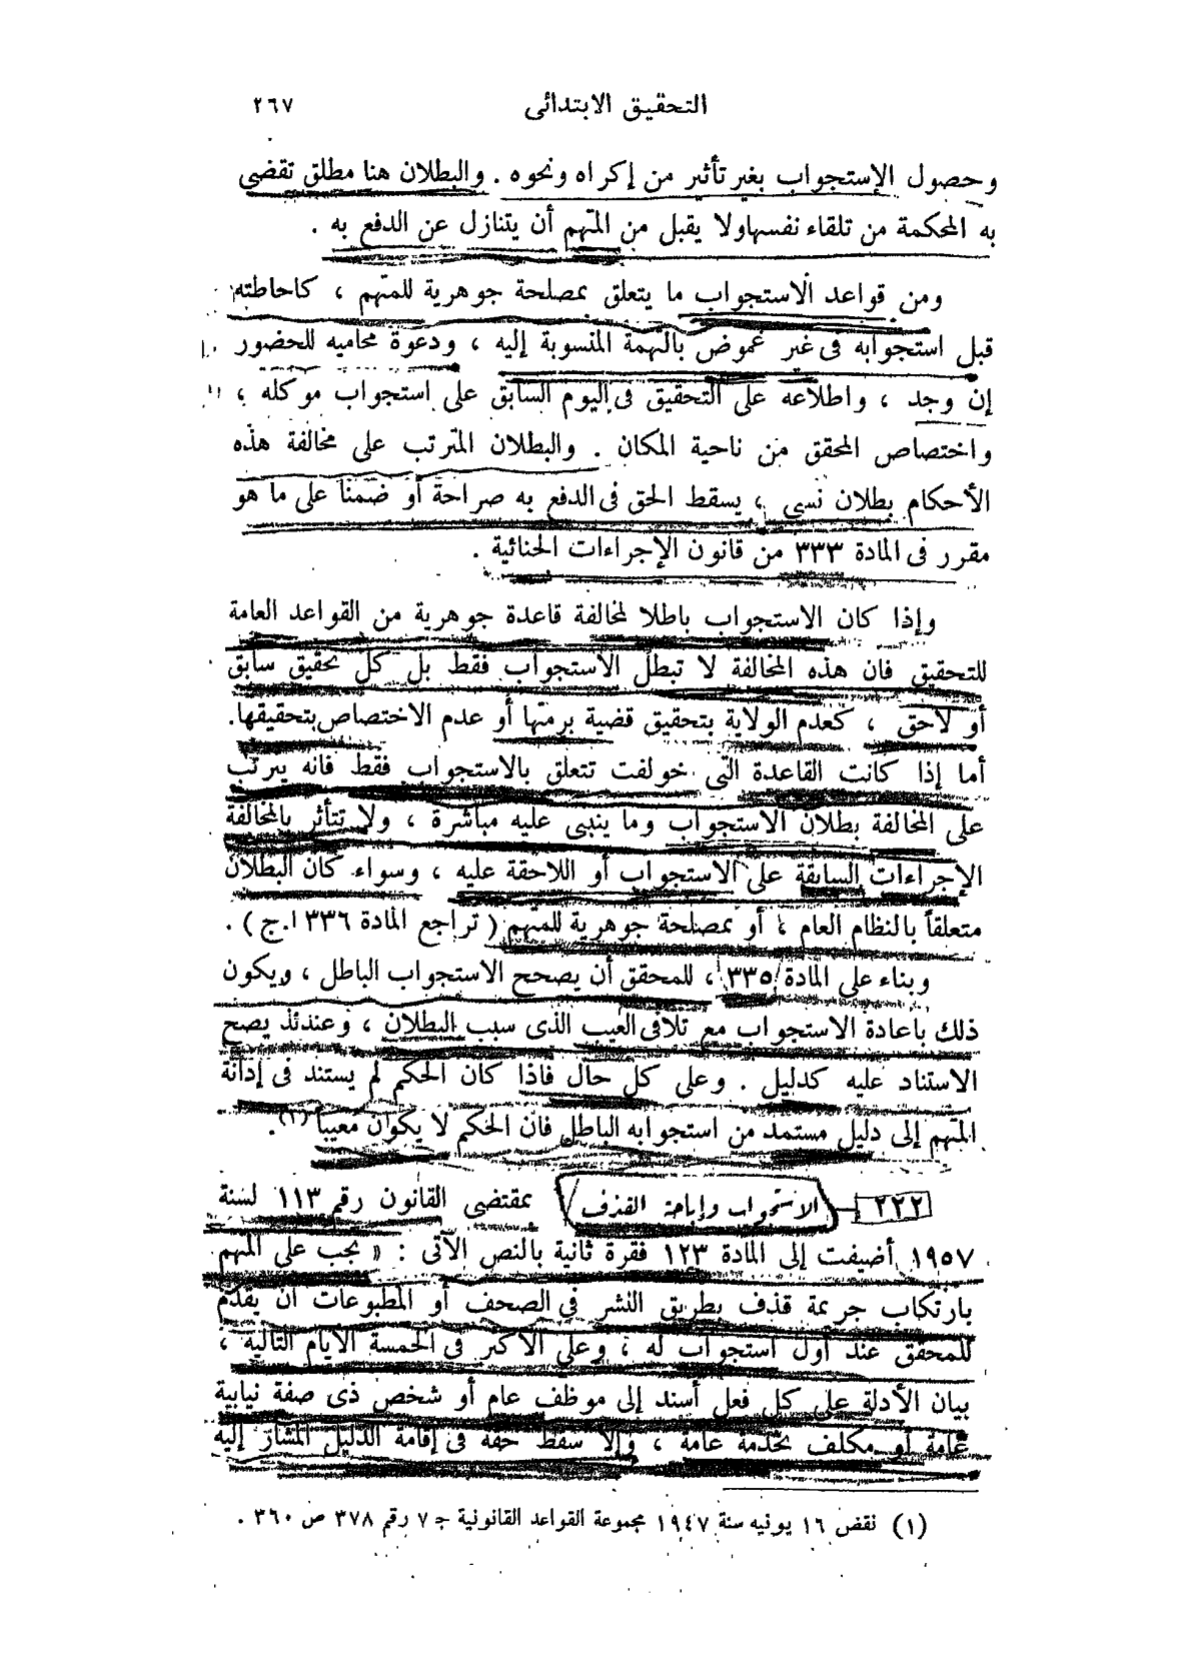 التحقيق الابتدائى ٢٦٧
وحصول الإستجواب بغير تأثير من إكراه ونحوه . والبطلان هنا مطلق تقضى
به المحكمة من تلقاء نفسها ولا يقبل من المتهم أن يتنازل عن الدفع به .
ومن قواعد الاستجواب ما يتعلق بمصلحة جوهرية للمتهم ، كاحاطته
قبل استجوابه فى غير غموض بالتهمة المنسوبة إليه ، ودعوة محاميه للحضور
إن وجد ، واطلاعه على التحقيق فى اليوم السابق على استجواب موكله ،
واختصاص المحقق من ناحية المكان . والبطلان المترتب على مخالفة هذه
الأحكام بطلان نسبى ، يسقط الحق فى الدفع به صراحة أو ضمنا على ما هو
مقرر فى المادة ٣٣٣ من قانون الإجراءات الجنائية .
وإذا كان الاستجواب باطلا لمخالفة قاعدة جوهرية من القواعد العامة
للتحقيق فان هذه المخالفة لا تبطل الاستجواب فقط بل كل تحقيق سابق
أو لاحق ، كعدم الولاية بتحقيق قضية برمتها أو عدم الاختصاص بتحقيقها.
أما إذا كانت القاعدة التى خولفت تتعلق بالاستجواب فقط فانه يترتب
على المخالفة بطلان الاستجواب وما ينبنى عليه مباشرة ، ولا تتأثر بالمخالفة
الإجراءات السابقة على الاستجواب أو اللاحقة عليه ، وسواء كان البطلان
متعلقاً بالنظام العام ، أو بمصلحة جوهرية للمتهم ( تراجع المادة ٣٣٦ ا.ج ) .
وبناء على المادة ٣٣٥ ، للمحقق أن يصحح الاستجواب الباطل ، ويكون
ذلك باعادة الاستجواب مع تلافى العيب الذى سبب البطلان ، وعندئذ يصح
الاستناد عليه كدليل . وعلى كل حال فاذا كان الحكم لم يستند فى إدانة
المتهم إلى دليل مستمد من استجوابه الباطل فان الحكم لا يكون معيباً (١) .
٢٢٢ – الاستجواب وإباحة القذف بمقتضى القانون رقم ١١٣ لسنة
١٩٥٧ أضيفت إلى المادة ١٢٣ فقرة ثانية بالنص الآتى : « يجب على المتهم
بارتكاب جريمة قذف بطريق النشر في الصحف أو المطبوعات ان يقدم
للمحقق عند أول استجواب له ، وعلى الأكثر فى الخمسة الأيام التالية ،
بيان الأدلة على كل فعل أسند إلى موظف عام أو شخص ذى صفة نيابية
عامة أو مكلف بخدمة عامة ، وإلا سقط حقه فى إقامة الدليل المشار إليه
(١) نقض ١٦ يونيه سنة ١٩٤٧ مجموعة القواعد القانونية ج ٧ رقم ٣٧٨ ص ٣٦٠ .